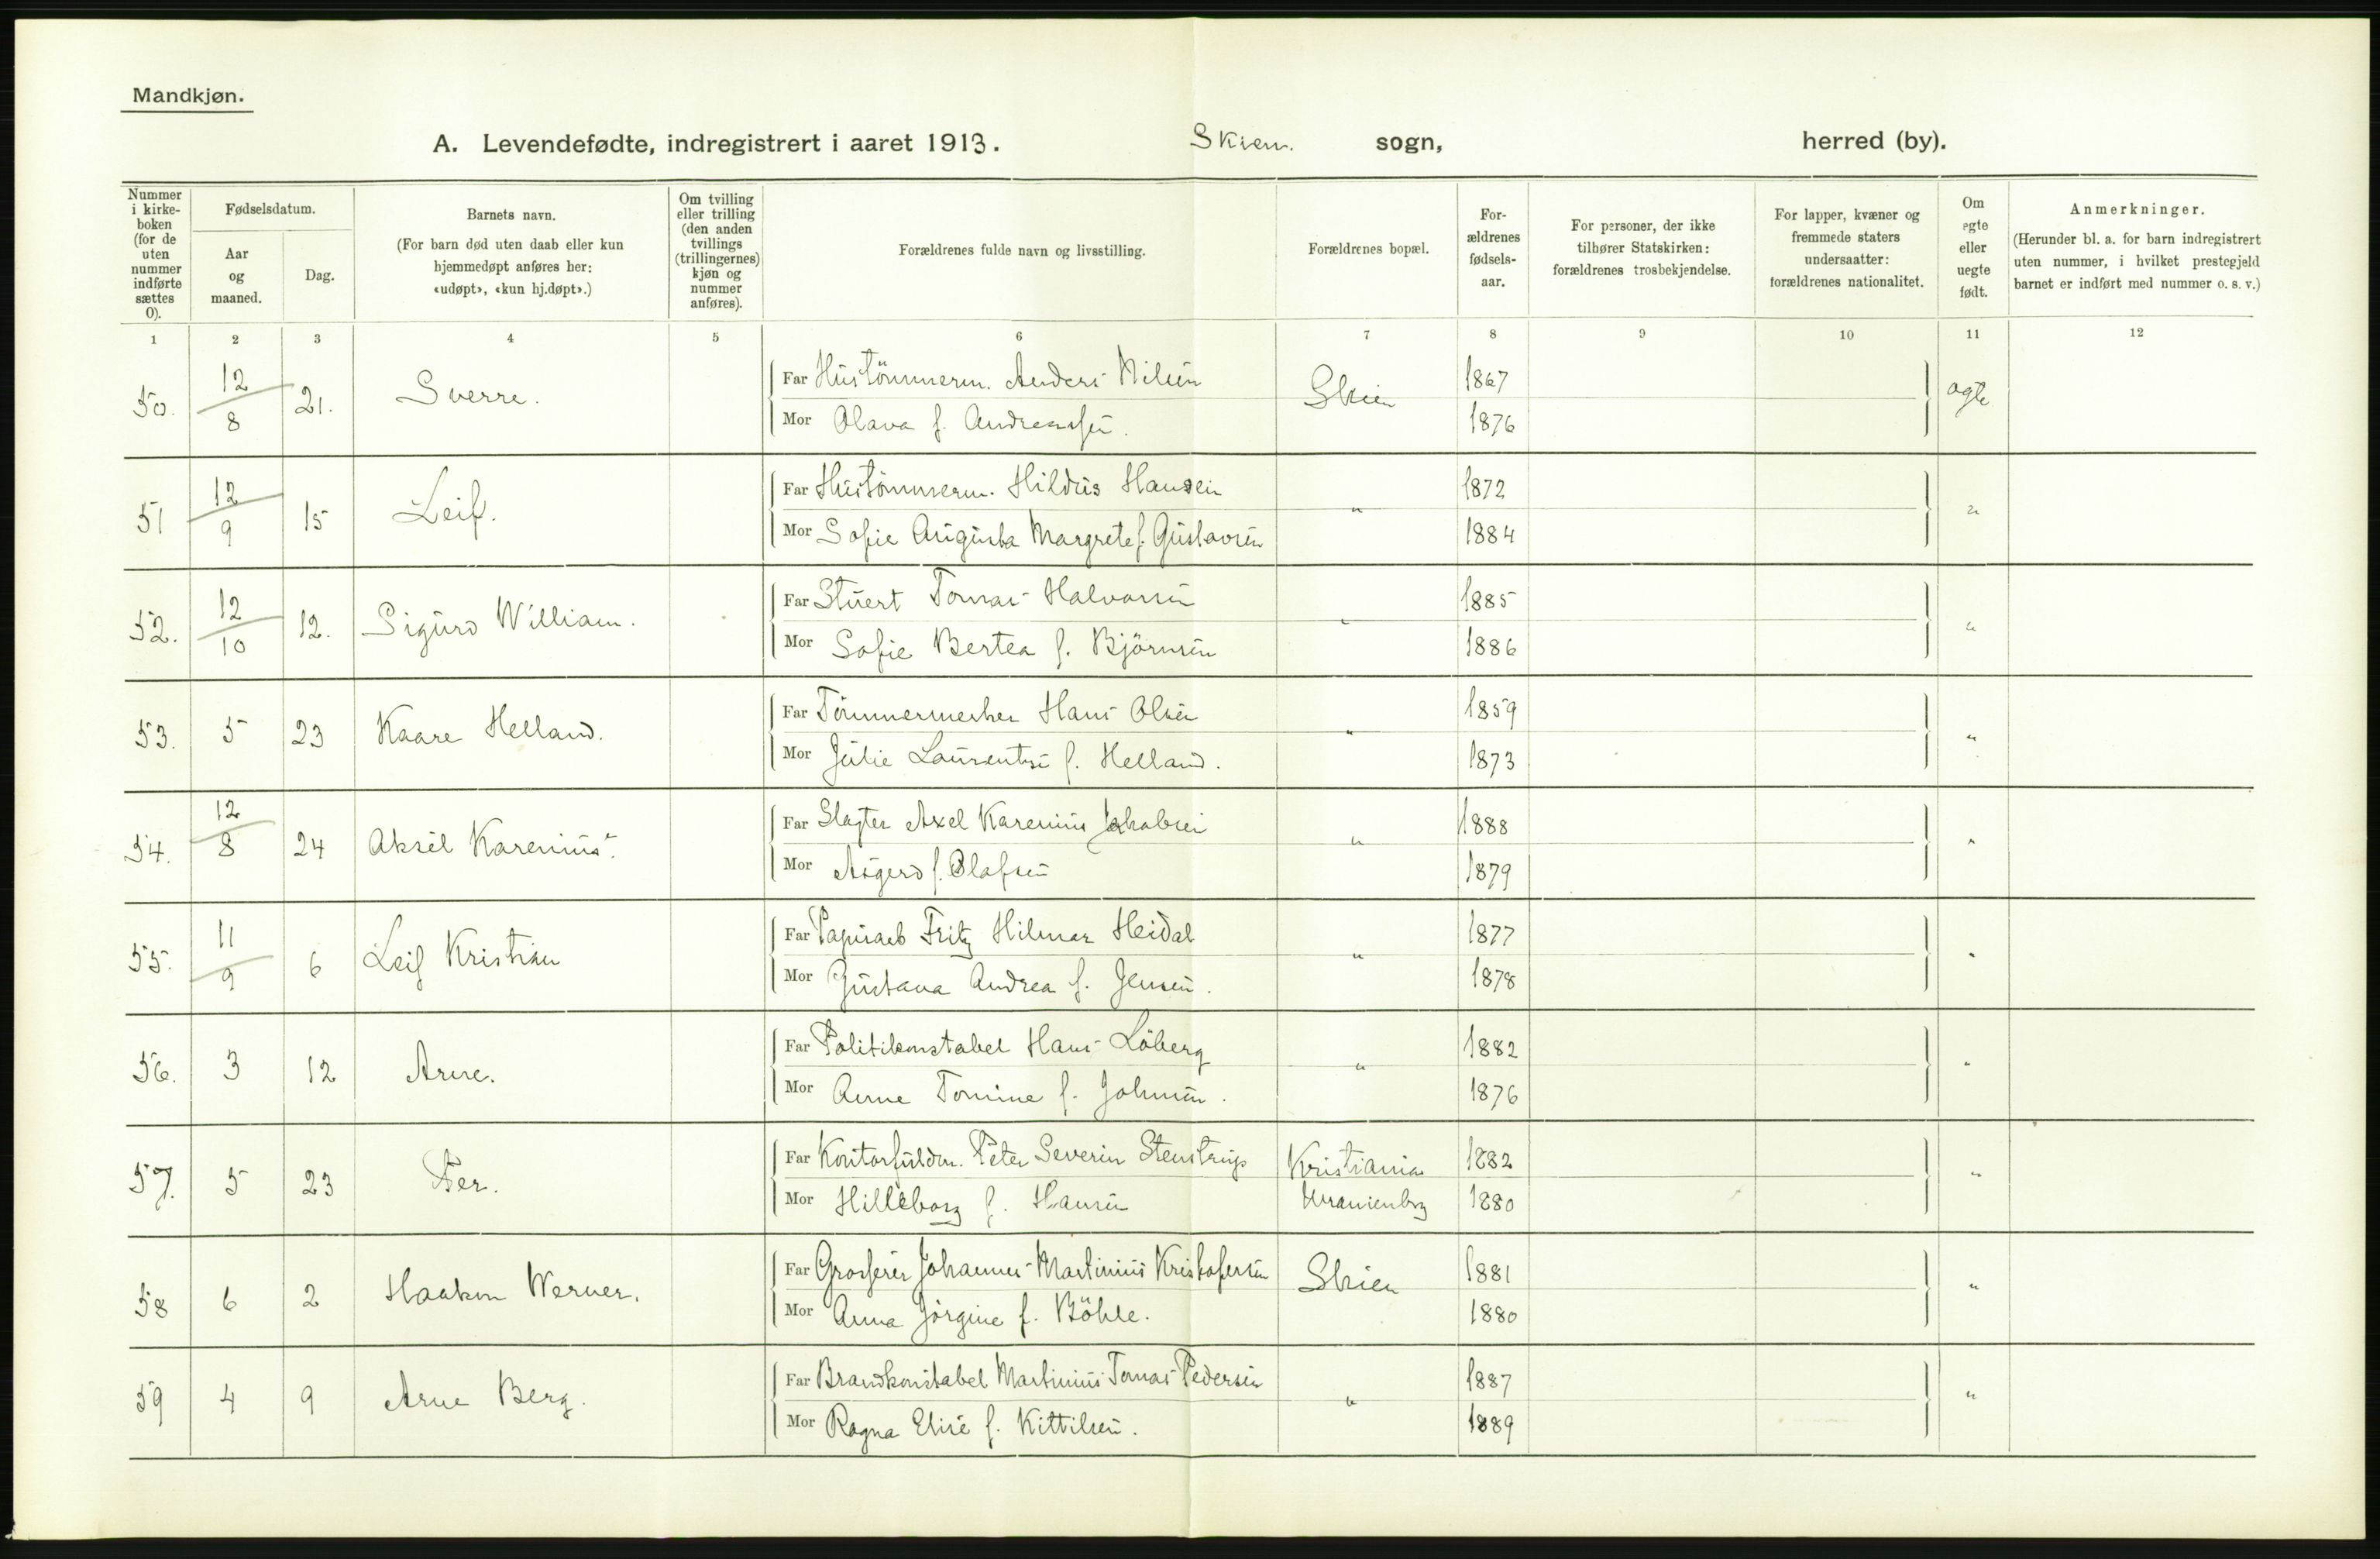 Mandkjøn.
A. Levendefødte, indregistrert i aaret 1913. Skien. sogn, herred (by).
Nummer i kirke- boken (for de uten nummer indførte sættes 0).
Fødselsdatum.
Aar og maaned.
Dag.
Barnets navn.
(For barn død uten daab eller kun hjemmedøpt anføres her: «udøpt», «kun hj.døpt».)
Om tvilling eller trilling (den anden tvillings (trillingernes) kjøn og nummer anføres).
Forældrenes fulde navn og livsstilling.
Forældrenes bopæl.
For- ældrenes fødsels- aar.
For personer, der ikke tilhører Statskirken: forældrenes trosbekjendelse.
For lapper, kvæner og fremmede staters undersaatter: forældrenes nationalitet.
Om egte eller uegte født.
Anmerkninger.
(Herunder bl. a. for barn indregistrert uten nummer, i hvilket prestegjeld barnet er indført med nummer o. s. v.)
1 2 3 4 5 6 7 8 9 10 11 12
50. 12/8 21. Sverre. Far Hustömmerm. Anders Nilsen Skien 1867 ægte
Mor Olava f. Andreassen. 1876
51 12/9 15 Leif. Far Hustömmerm. Hildus Hansen " 1872 "
Mor Sofie Augusta Margrete f. Gustavsen 1884
52. 12/10 12. Sigurd William. Far Stuert Tomas Halvorsen " 1885 "
Mor Sofie Bertea f. Björnsen 1886
53. 5 23 Kaare Helland. Far Tömmermester Hans Olsen " 1859 "
Mor Julie Laurentse f. Helland. 1873
54. 12/8 24 Aksel Karenius. Far Slagter Axel Karenius Jakobsen " 1888 "
Mor Asgerd f. Olafsen 1879
55. 11/9 6 Leif Kristian Far Papirarb Fritz Hilmar Heidal " 1877 "
Mor Gustava Andrea f. Jensen. 1878
56. 3 12 Arne. Far Politikonstabel Hans Löberg " 1882 "
Mor Anne Tomine f. Johnsen. 1876
57. 5 23 Per. Far Kontorfuldm. Peter Severin Stenstrup Kristiania 1882 "
Mor Hilleborg f. Hansen Uranienborg 1880
58 6 2 Haakon Werner. Far Grosserer Johannes Martinius Kristofersen Skien 1881 "
Mor Anna Jörgine f. Böhle. 1880
59 4 9 Arne Berg. Far Brandkonstabel Martinius Tomas Pedersen " 1887 "
Mor Ragna Elise f. Kittilsen. 1889